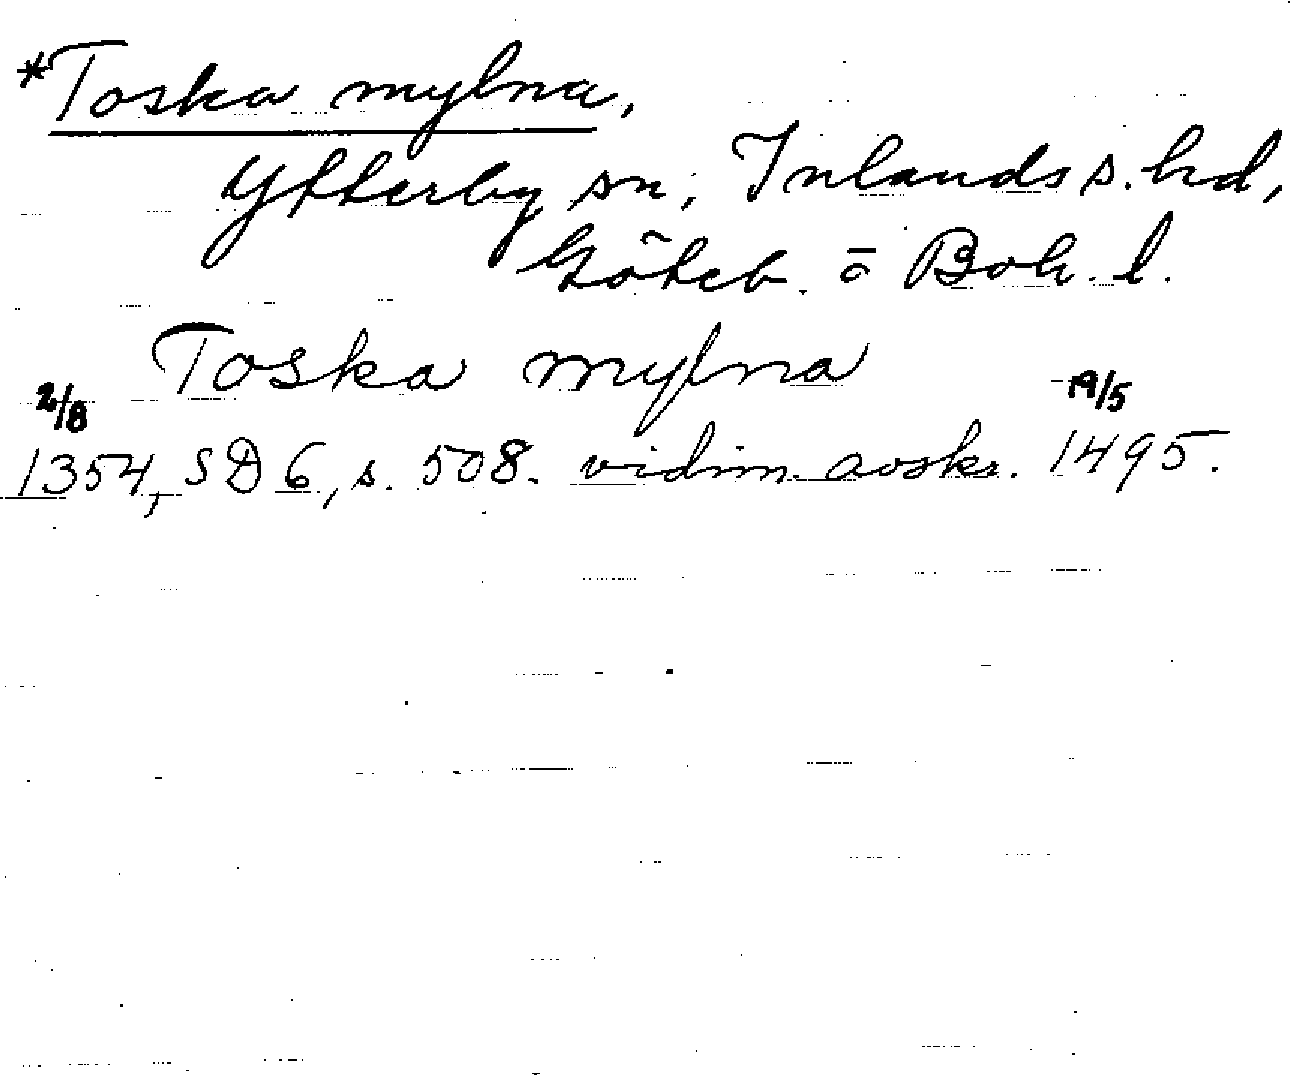 *Toska mylna,
Ytterby sn, Inlands s. hd,
Göteb. o Boh. l.
Toska mylna
2/8 19/5
1354, SD 6, s. 508. vidim. avskr. 1495.